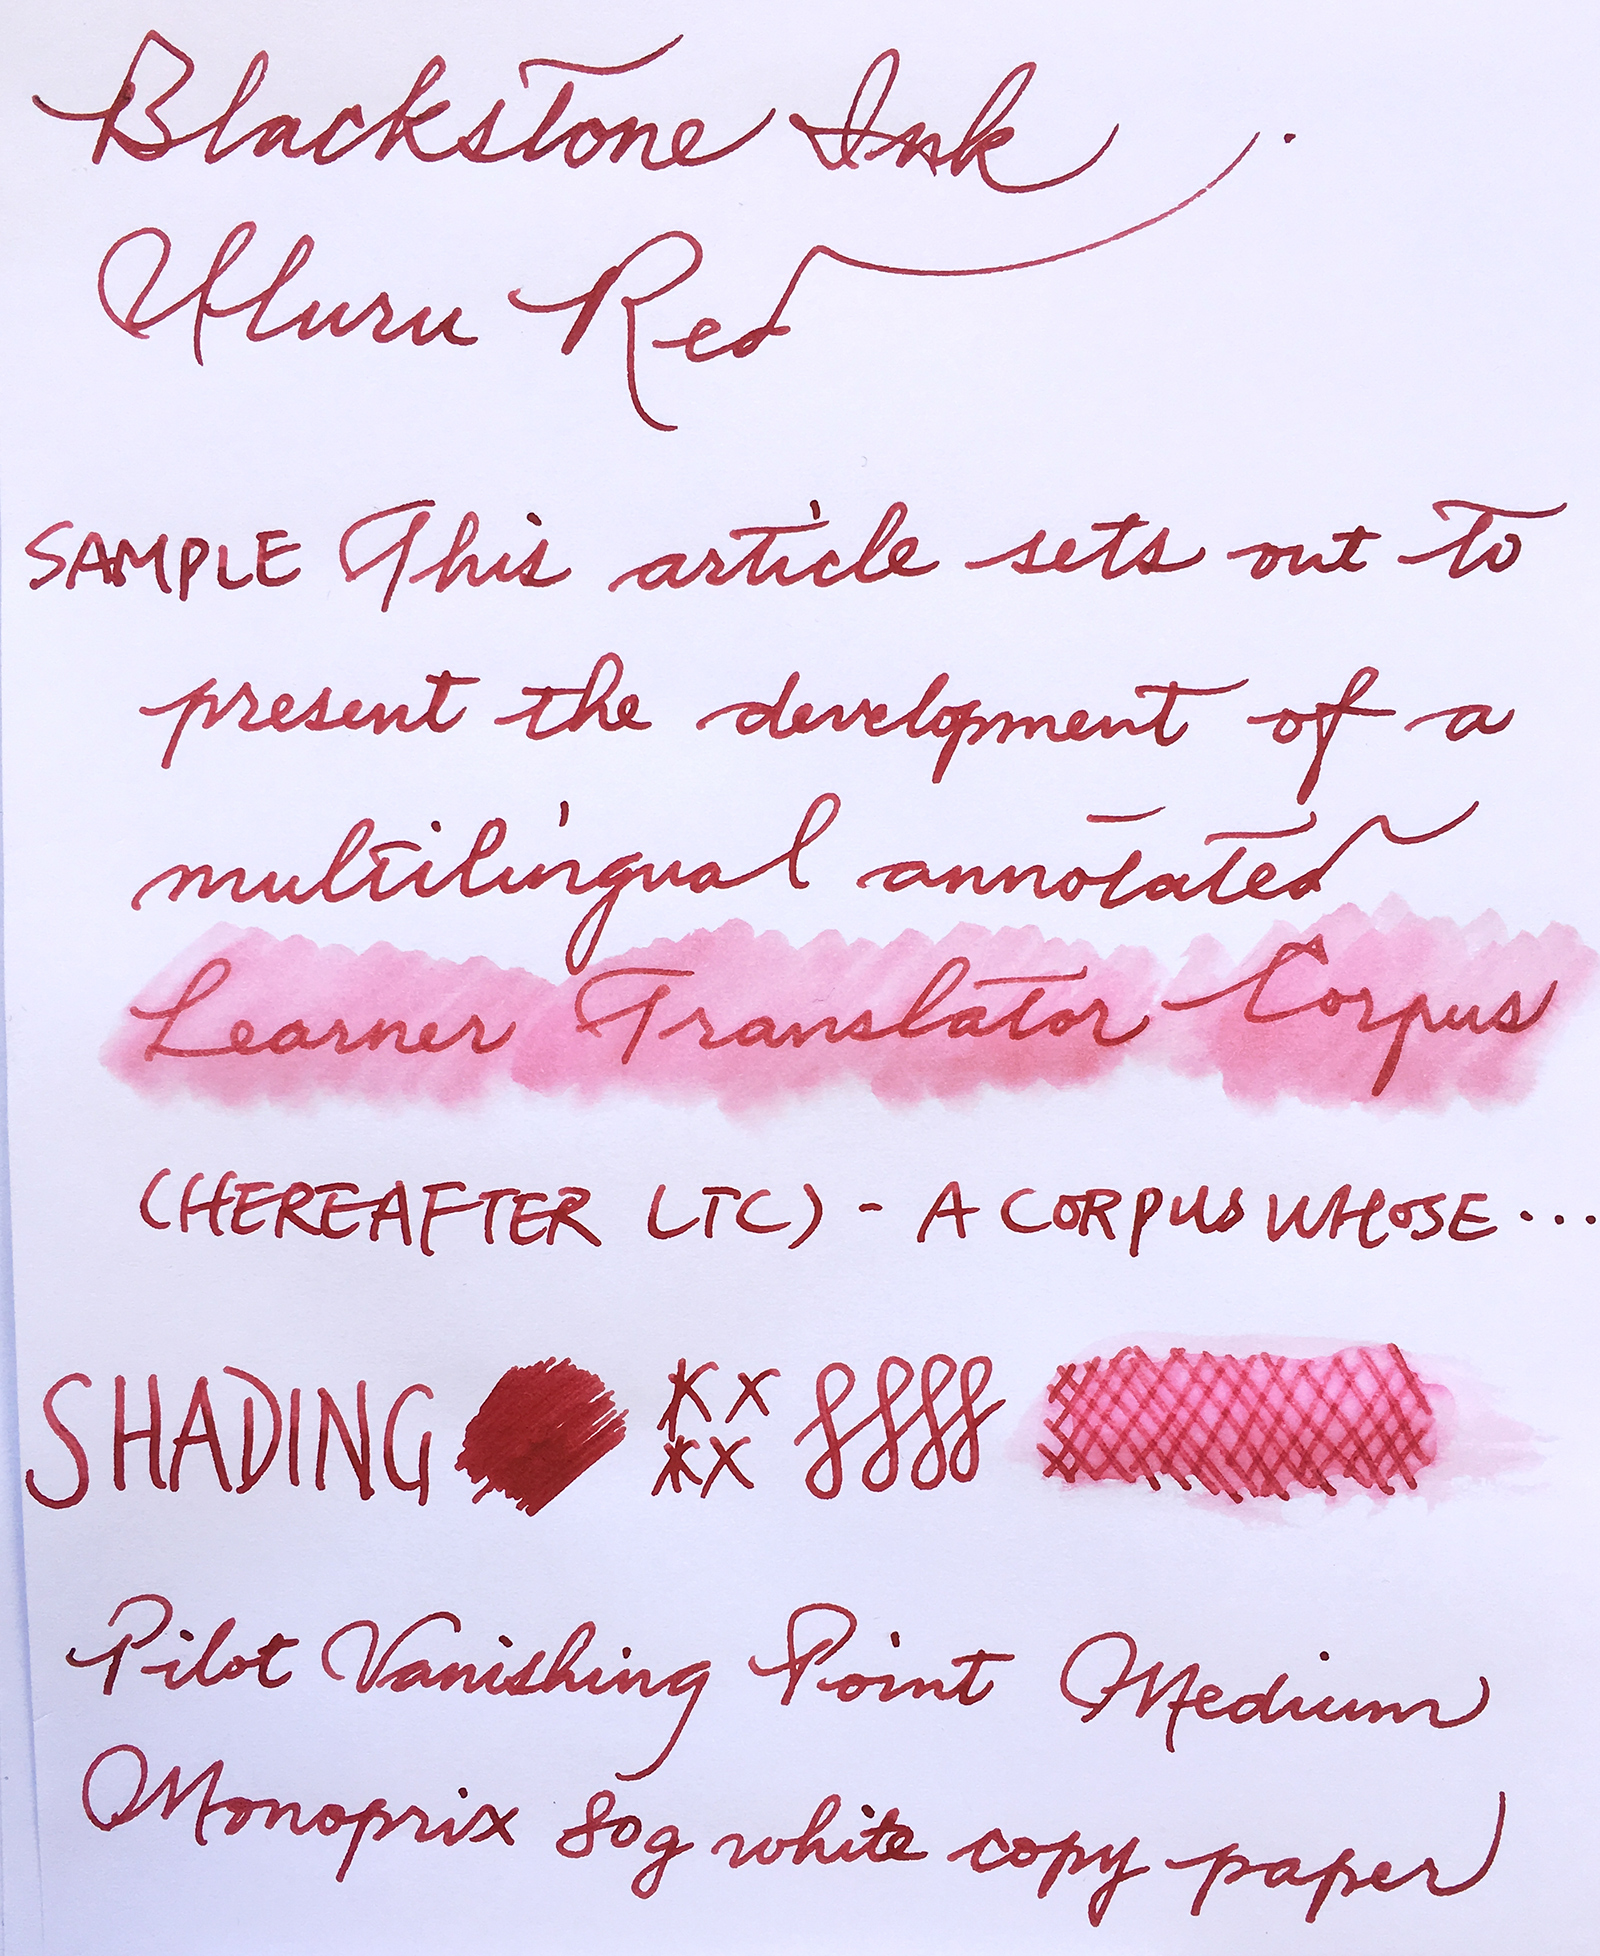 Blackstone Ink
Uluru Red
SAMPLE This article sets out to
present the development of a
multilingual annotated
Learner Translator Corpus
(HEREAFTER LTC) - A CORPUS WHOSE...
SHADING
Pilot Vanishing Point Medium
Monoprix 80g white copy paper